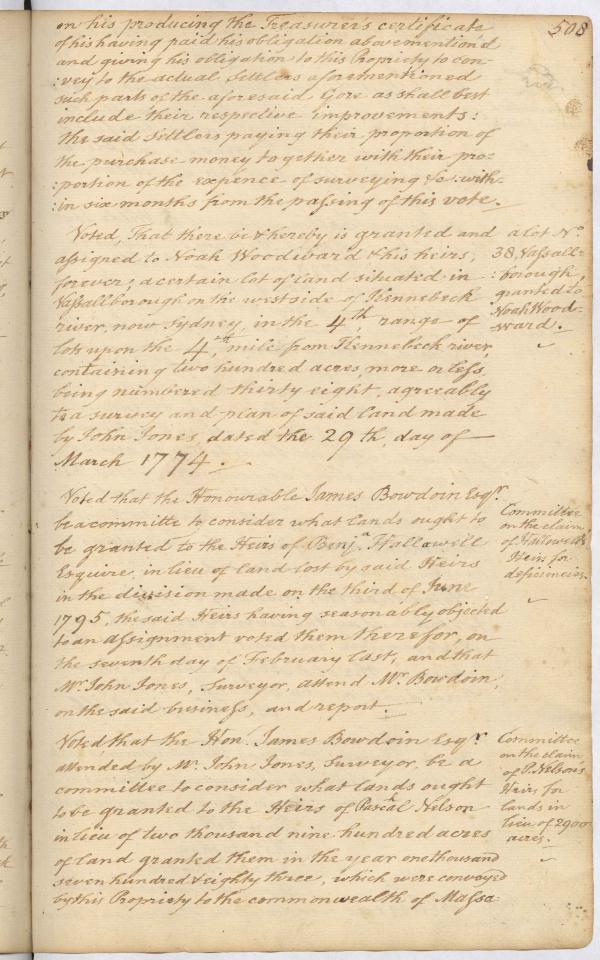 508
on his producing the Treasurer's certificate
of his having paid his obligation abovemention'd
and giving his obligation to this Propriety to con-
:vey to the actual Settlers aforementioned
such parts of the aforesaid Gore as shall best
include their respective improvements:
the said Settlers paying their proportion of
the purchase money together with their pro-
:portion of the expence of surveying &c with-
:in six months from the passing of this vote.
Voted, That there be & hereby is granted and
assigned to Noah Woodward & his heirs,
forever; a certain lot of land situated in
Vassallborough on the west side of Kennebeck
river, now Sydney, in the 4th, range of
lots upon the 4th, mile from Kennebeck river,
containing two hundred acres, more or less,
being numbered thirty eight, agreeably
to a survey and plan of said land made
by John Jones, dated the 29th, day of
March 1774.
a lot No.
38, Vassall-
:borough,
granted to
Noah Wood-
ward.
Voted that the Honourable James Bowdoin Esqr.
be a committe to consider what lands ought to
be granted to the Heirs of Benja. Hallowell
Esquire in lieu of land lost by said Heirs
in the division made on the third of June
1795, the said Heirs having seasonably objected
to an assignment voted them therefor, on
the seventh day of February last, and that
Mr. John Jones, Surveyor, attend Mr. Bowdoin,
on the said business, and report.
Committee
on the claim
of Hallowell's
Heirs for
deficiencies.
Voted that the Hon. James Bowdoin Esqr
attended by Mr. John Jones, Surveyor, be a
committee to consider what lands ought
to be granted to the Heirs of Pascal Nelson
in lieu of two thousand nine hundred acres
of land granted them in the year one thousand
seven hundred & eighty three, which were conveyed
by this Propriety to the commonwealth of Massa-
Committee
on the claim
of P. Nelson's
Heirs for
lands in
lieu of 2900
acres.